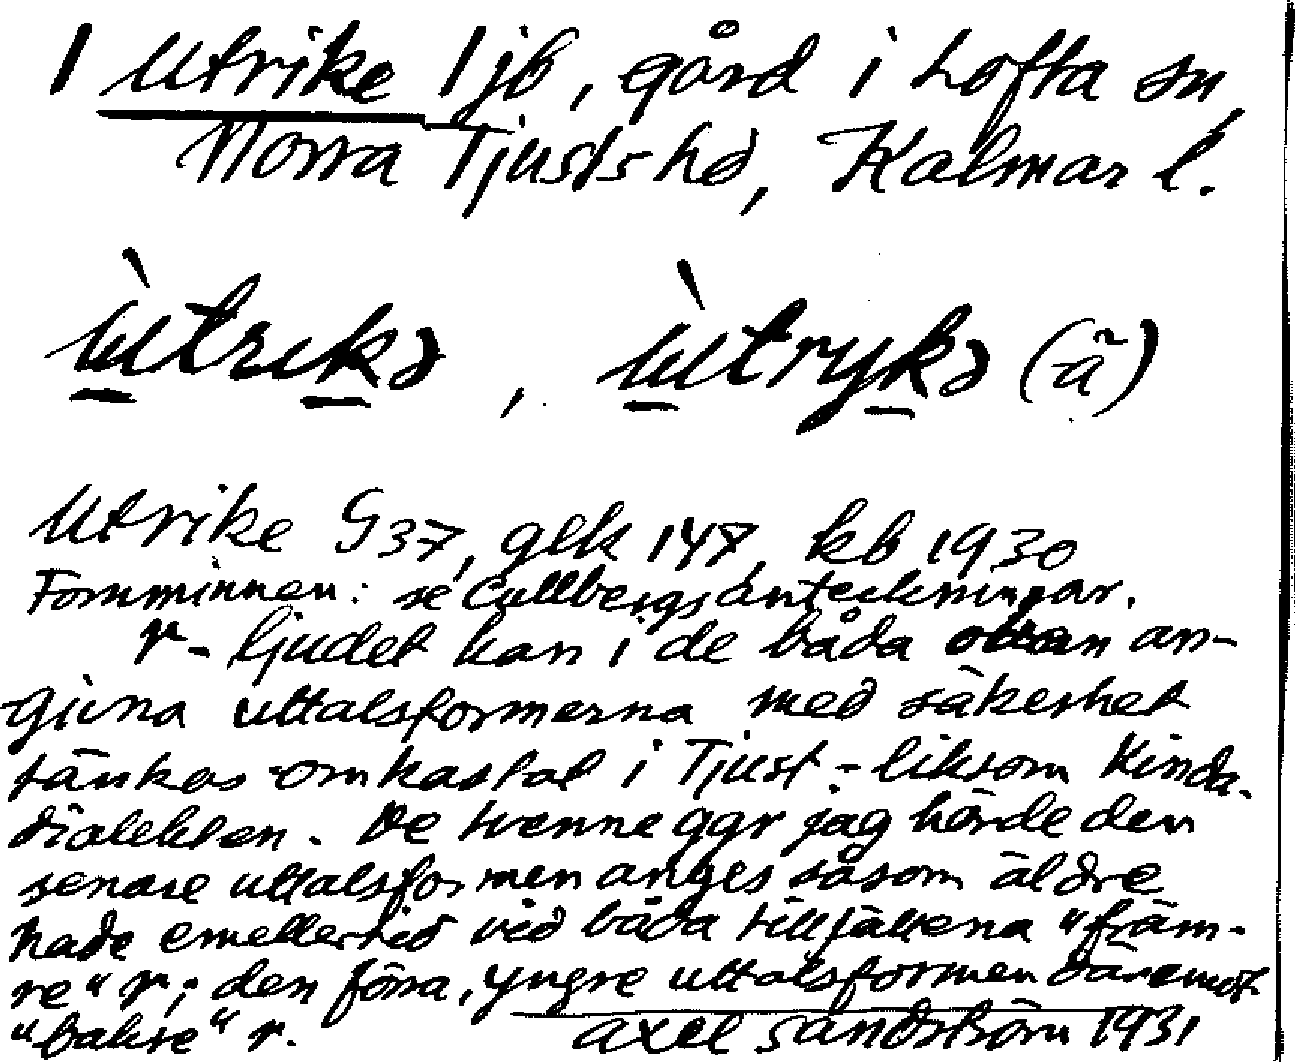 1 Utrike 1 jb, gård i Lofta sn,
Norra Tjusts hd, Kalmar l.
ùtrıkə , ùtrykə (ä)
Utrike G 37, glk 147, kb 1930
Fornminnen: se Cullbergs anteckningar.
r-ljudet kan i de båda ovan an-
givna uttalsformerna med säkerhet
tänkas omkastat i Tjust- liksom Kinda-
dialekten. De tvenne ggr jag hörde den
senare uttalsformen anges såsom äldre
hade emellertid vid båda tillfällena "främ-
re" r; den förra, yngre uttalsformen däremot
"bakre" r. Axel Sandström 1931